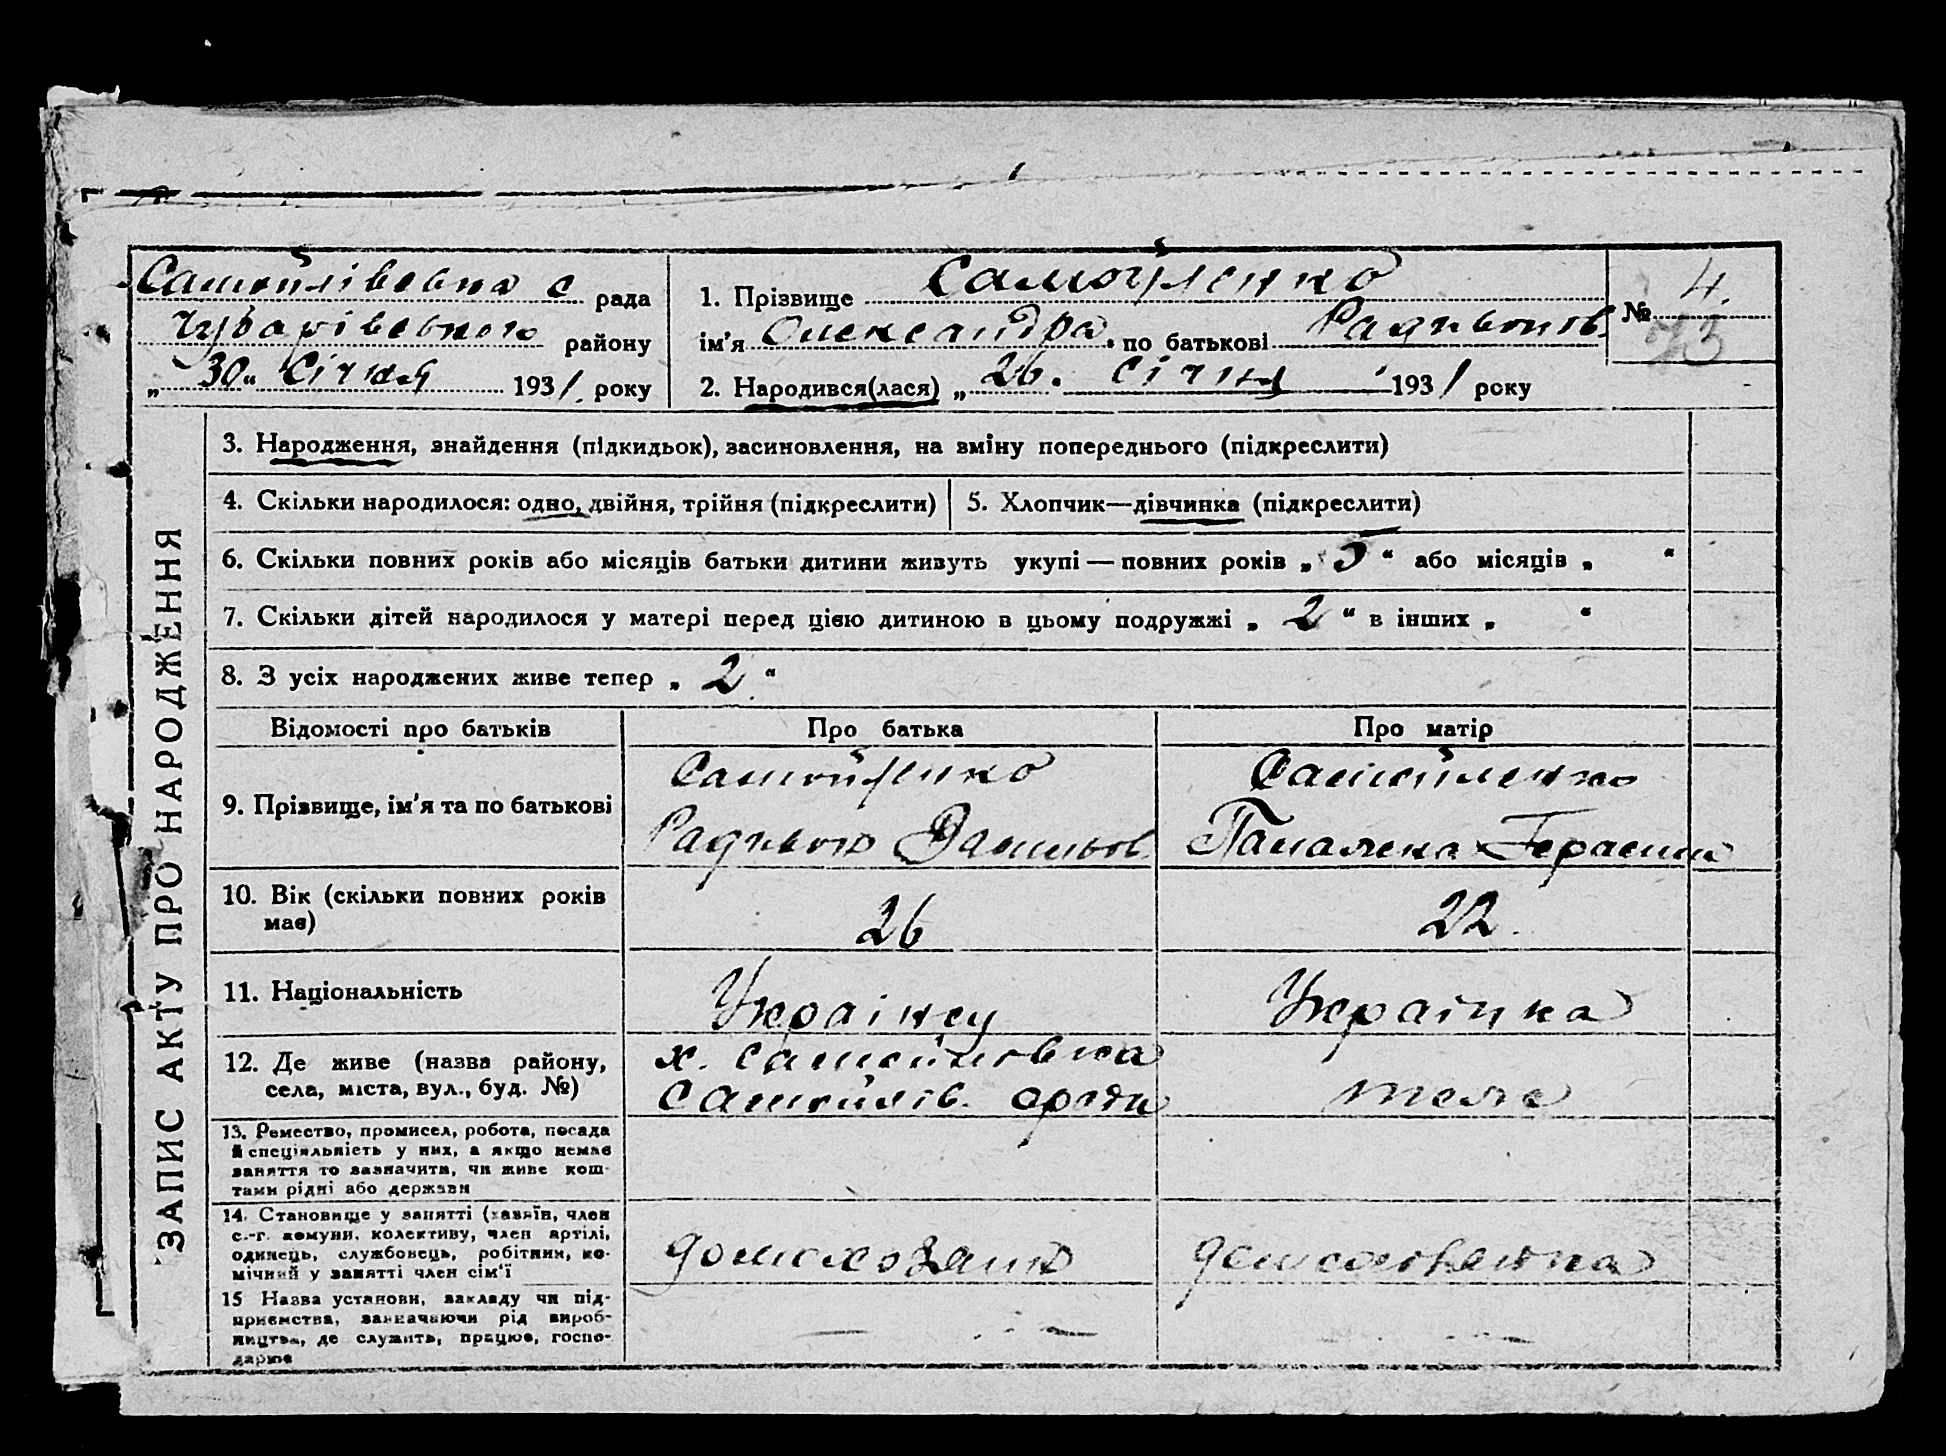 ЗАПИС АКТУ ПРО НАРОДЖЕННЯ
Самойлівська с рада
Чубарівського району
„30“ Січня 1931 року
1. Прізвище Самойленко
ім'я Олександра. по батькові Радивонов.
2. Народився(лася) „26. Січня 1931 року
№ 4.
3. Народження, знайдення (підкидьок), засиновлення, на зміну попереднього (підкреслити)
4. Скільки народилося: одно, двійня, трійня (підкреслити)
5. Хлопчик—дівчинка (підкреслити)
6. Скільки повних років або місяців батьки дитини живуть укупі — повних років „5“ або місяців „ “
7. Скільки дітей народилося у матері перед цією дитиною в цьому подружжі „2“ в інших „ “
8. З усіх народжених живе тепер „2“
Відомості про батьків Про батька Про матір
9. Прізвище, ім'я та по батькові
Самойленко
Радивон
Самойленко
Герасим
10. Вік (скільки повних років
має)
26
22.
11. Національність
Українец
Українка
12. Де живе (назва району,
села, міста, вул., буд. №)
х. Самойловка
Самойлів. с
теже
13. Ремество, промисел, робота, посада
й спеціяльність у них, а якщо немає
заняття то зазначити, чи живе кош-
тами рідні або держави
14. Становище у занятті (хазяїн, член
с.-г. комуни, колективу, член артілі,
одинець, службовець, робітник, по-
мічний у занятті член сім'ї
домохозяин
домохозяйка
15 Назва установи, закладу чи під-
приємства, зазначаючи рід вироб-
ництва, де служить, працює, госпо-
дарює